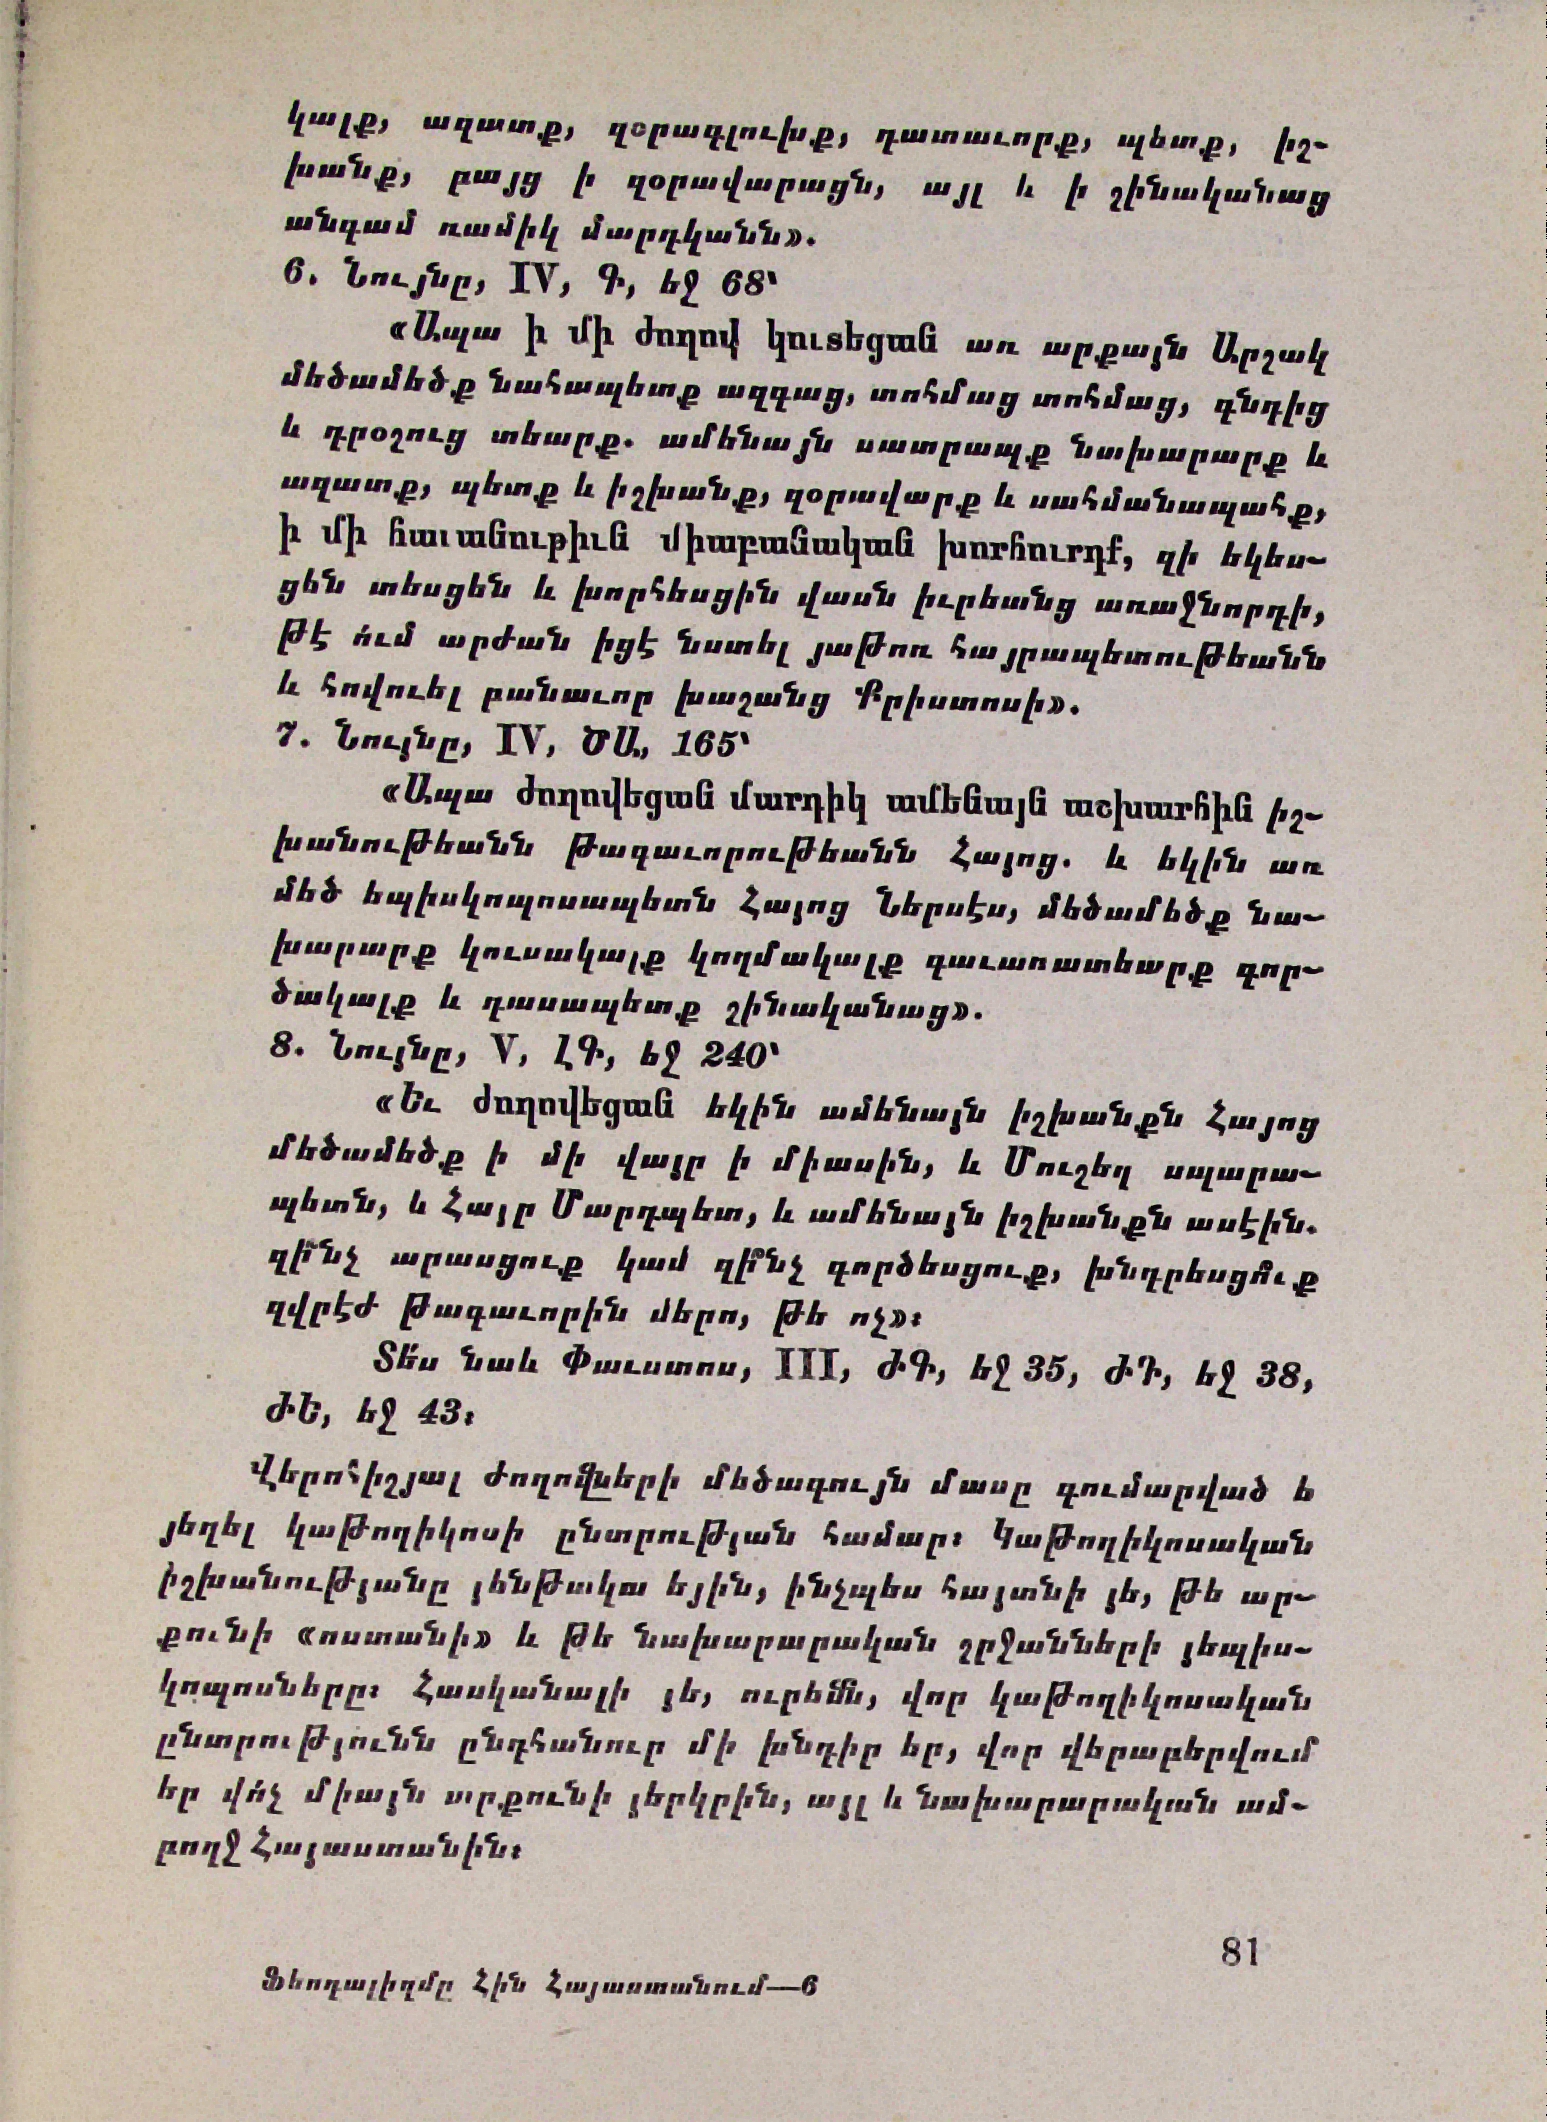 կալք, ազատք, զօրագլուխք, դատաւորք, պետք, իշ-
խանք, բայց ի զօրավարացն, այլ և ի շինականաց
անգամ ռամիկ մարդկանն».
6. Նույնը, IV, Գ, եջ 68՝
«Ապա ի մի ժողով կուտեցան առ արքայն Արշակ
մեծամեծք նահապետք ազգաց, տոհմաց տոհմաց, գնդից
և դրօշուց տեարք. ամենայն սատրապք նախարարք և
ազատք, պետք և իշխանք, զօրավարք և սահմանապահք,
ի մի հաւանութիւն միաբանական խորհուրդք, զի եկես-
ցեն տեսցեն և խորհեսցին վասն իւրեանց առաջնորդի,
թէ ո՛ւմ արժան իցէ նստել յաթոռ հայրապետութեանն
և հովուել բանաւոր խաշանց Քրիստոսի».
7. Նույնը, IV, ԾԱ, 165՝
«Ապա ժողովեցան մարդիկ ամենայն աշխարհին իշ-
խանութեանն թագաւորութեանն Հայոց. և եկին առ
մեծ եպիսկոպոսապետն Հայոց Ներսէս, մեծամեծք նա-
խարարք կուսակալք կողմակալք գաւառատեարք գոր-
ծակալք և դասապետք շինականաց».
8. Նույնը, V, ԼԳ, եջ 240՝
«Եւ ժողովեցան եկին ամենայն իշխանքն Հայոց
մեծամեծք ի մի վայր ի միասին, և Մուշեղ սպարա-
պետն, և Հայր Մարդպետ, և ամենայն իշխանքն ասէին.
զի՞նչ արասցուք կամ զի՞նչ գործեսցուք, խնդրեսցո՞ւք
զվրէժ թագաւորին մերո, թե ոչ»:
Տե՛ս նաև Փաւստոս, III, ԺԳ, եջ 35, ԺԴ, եջ 38,
ԺԵ, եջ 43:
Վերոհիշյալ ժողովների մեծագույն մասը գումարված ե
յեղել կաթողիկոսի ընտրության համար: Կաթողիկոսական
իշխանությանը յենթակա եյին, ինչպես հայտնի յե, թե ար-
քունի «ոստանի» և թե նախարարական շրջանների յեպիս-
կոպոսները: Հասկանալի յե, ուրեմն, վոր կաթողիկոսական
ընտրությունն ընդհանուր մի խնդիր եր, վոր վերաբերվում
եր վո՛չ միայն արքունի յերկրին, այլ և նախարարական ամ-
բողջ Հայաստանին:
81
Ֆեոդալիզմը Հին Հայաստանում—6